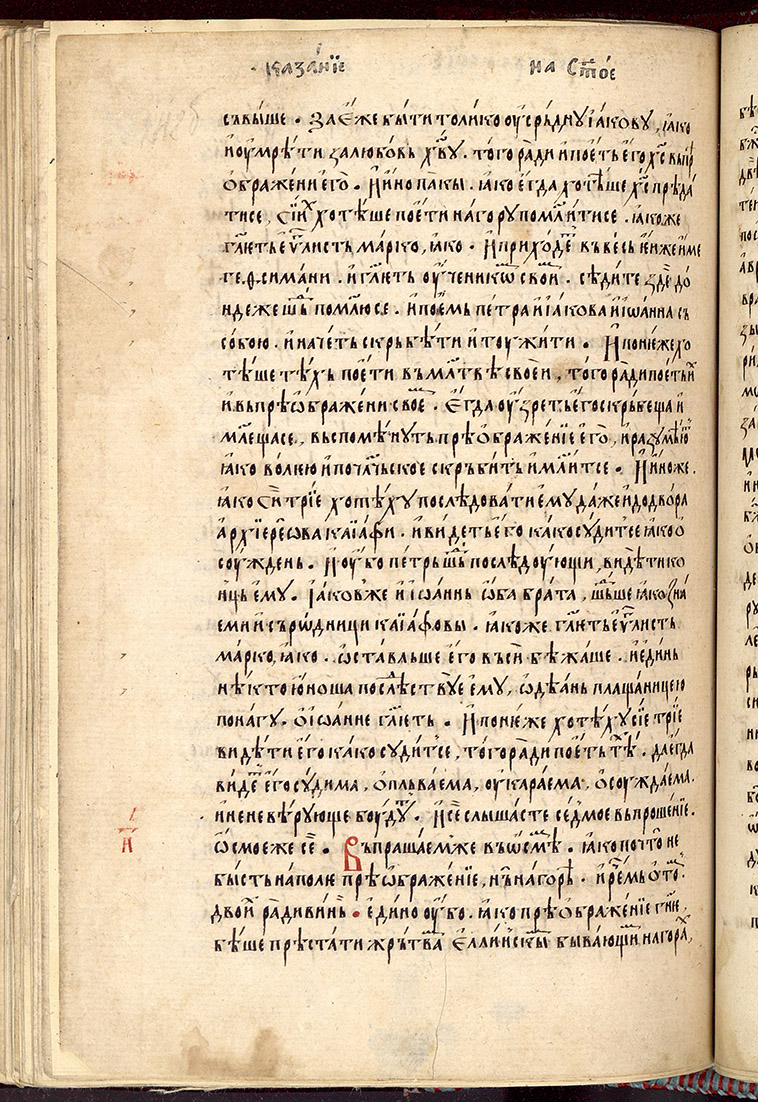 Казанїе на Ст҃ое
съвыше . За є́же бы́ти толи́ко оу҆сръ́дну І҆а́кову , ꙗ҆́ко
и҆ оумрѣ́ти за любо́вь хв҃у . того ра́ди и҆ пое́ть е҆го̀ хс҃ въ пр
ѡбраже́ни е҆го̀ . И҆ и҆но па́кы . ꙗ҆́ко е҆гда̀ хотѣ́ше хс҃ прѣда́
ти се , сїи́х хотѣ́ше пое́ти на го́ру помлⷭ҇и́ти се . ꙗ҆́коже
гл҃еть еѵⷢ҇листь Ма́рко , ꙗ҆́ко . И҆ прихо́детⷭ҇ въ ве́сь е҆и́же и҆́ме
геѳсима́ни . и҆ гл҃еть оу҆ченикѡ́м свои́м . сѣди́те здѐ до́
ндеже шьⷣ помлю́ се . и҆ пое́мь петра̀ и҆ І҆а́кова и҆ І҆ѡа́нна съ
собо́ю . и҆ наче́ть скръбѣ́ти и҆ тоужи́ти . И҆ поне́же хо
тѣ́ше тѣ́хь пое́ти въ мл҃твѣ свое́и , того ра́ди пое́ть и҆х
и҆ въ прѣѡбраже́ни свое́м . Є҆гда̀ оу҆́зреть е҆го̀ скръбе́ща и҆
мл҃еща се , въспоме́нуть прѣѡбраже́нїе е҆го̀ , и҆ разумѣ́ють
ꙗ҆́ко во́лею и҆ по чл҃чьское скръби́ть и҆ мл҃и́т се . И҆ и҆но же .
ꙗ҆́ко сїи́ трїе хотѣ́ху послѣ́довати е҆му̀ да́же и҆ до дво́ра
а҆рхїере́ѡва каїа́фи . и҆ ви́деть е҆го̀ ка́ко су́дит се ꙗ҆́ко ѡ
соу́ждень . И҆ оу҆бо пе́трь шьⷣ послѣ́доую́щи , ви́дѣти ко
не́ць е҆му̀ . І҆а́ков же и҆ І҆ѡа́ннь ѡ҆́ба бра́та , шьⷣше ꙗ҆́ко зна́
еми и҆ съро́дници каїа́фовы . ꙗ҆́коже гл҃еть еѵⷢ҇листь
ма́рко , ꙗ҆́ко . ѡ҆ста́вльше е҆го̀ въсѝ бѣжа́ше . и҆ е҆ди́нь
нѣ́кто ю҆́ноша послѣ́ствуе е҆му̀ , ѡ҆дѣ́ань плащани́цею
по на́гу . ѡ҆ І҆ѡа́нне гл҃еть . И҆ поне́же хотѣ́ху сїе трїе
ви́дѣти е҆го̀ ка́ко су́дит се , того ра́ди пое́ть те́ . да е҆гда̀
ви́деть е҆го̀ су́дима , ѡ҆плъва́ема , оу҆кара́ема , ѡ҆соужда́ема .
и҆ не невѣ́рующе боу́дуть . И҆ сѐ слы́шасте се́дмое въпроше́нїе .
Ѡ҆смо́е же сѐ . Въпраша́ем же въ ѡ҆смѣ́м . ꙗ҆́ко почто̀ не
бы́сть на по́лю прѣѡбраже́нїе , нь на горѣ́ . и҆ рце́мь ѡ҆ то́м .
двои́ ра́ди ви́нь . е҆ди́но оу҆́бо . ꙗ҆́ко прѣѡбраже́нїе гн҃е ,
бѣ́ше прѣста́ти жрътва́м є҆́ллинскы́м быва́ющим на гора́х ,
и҃